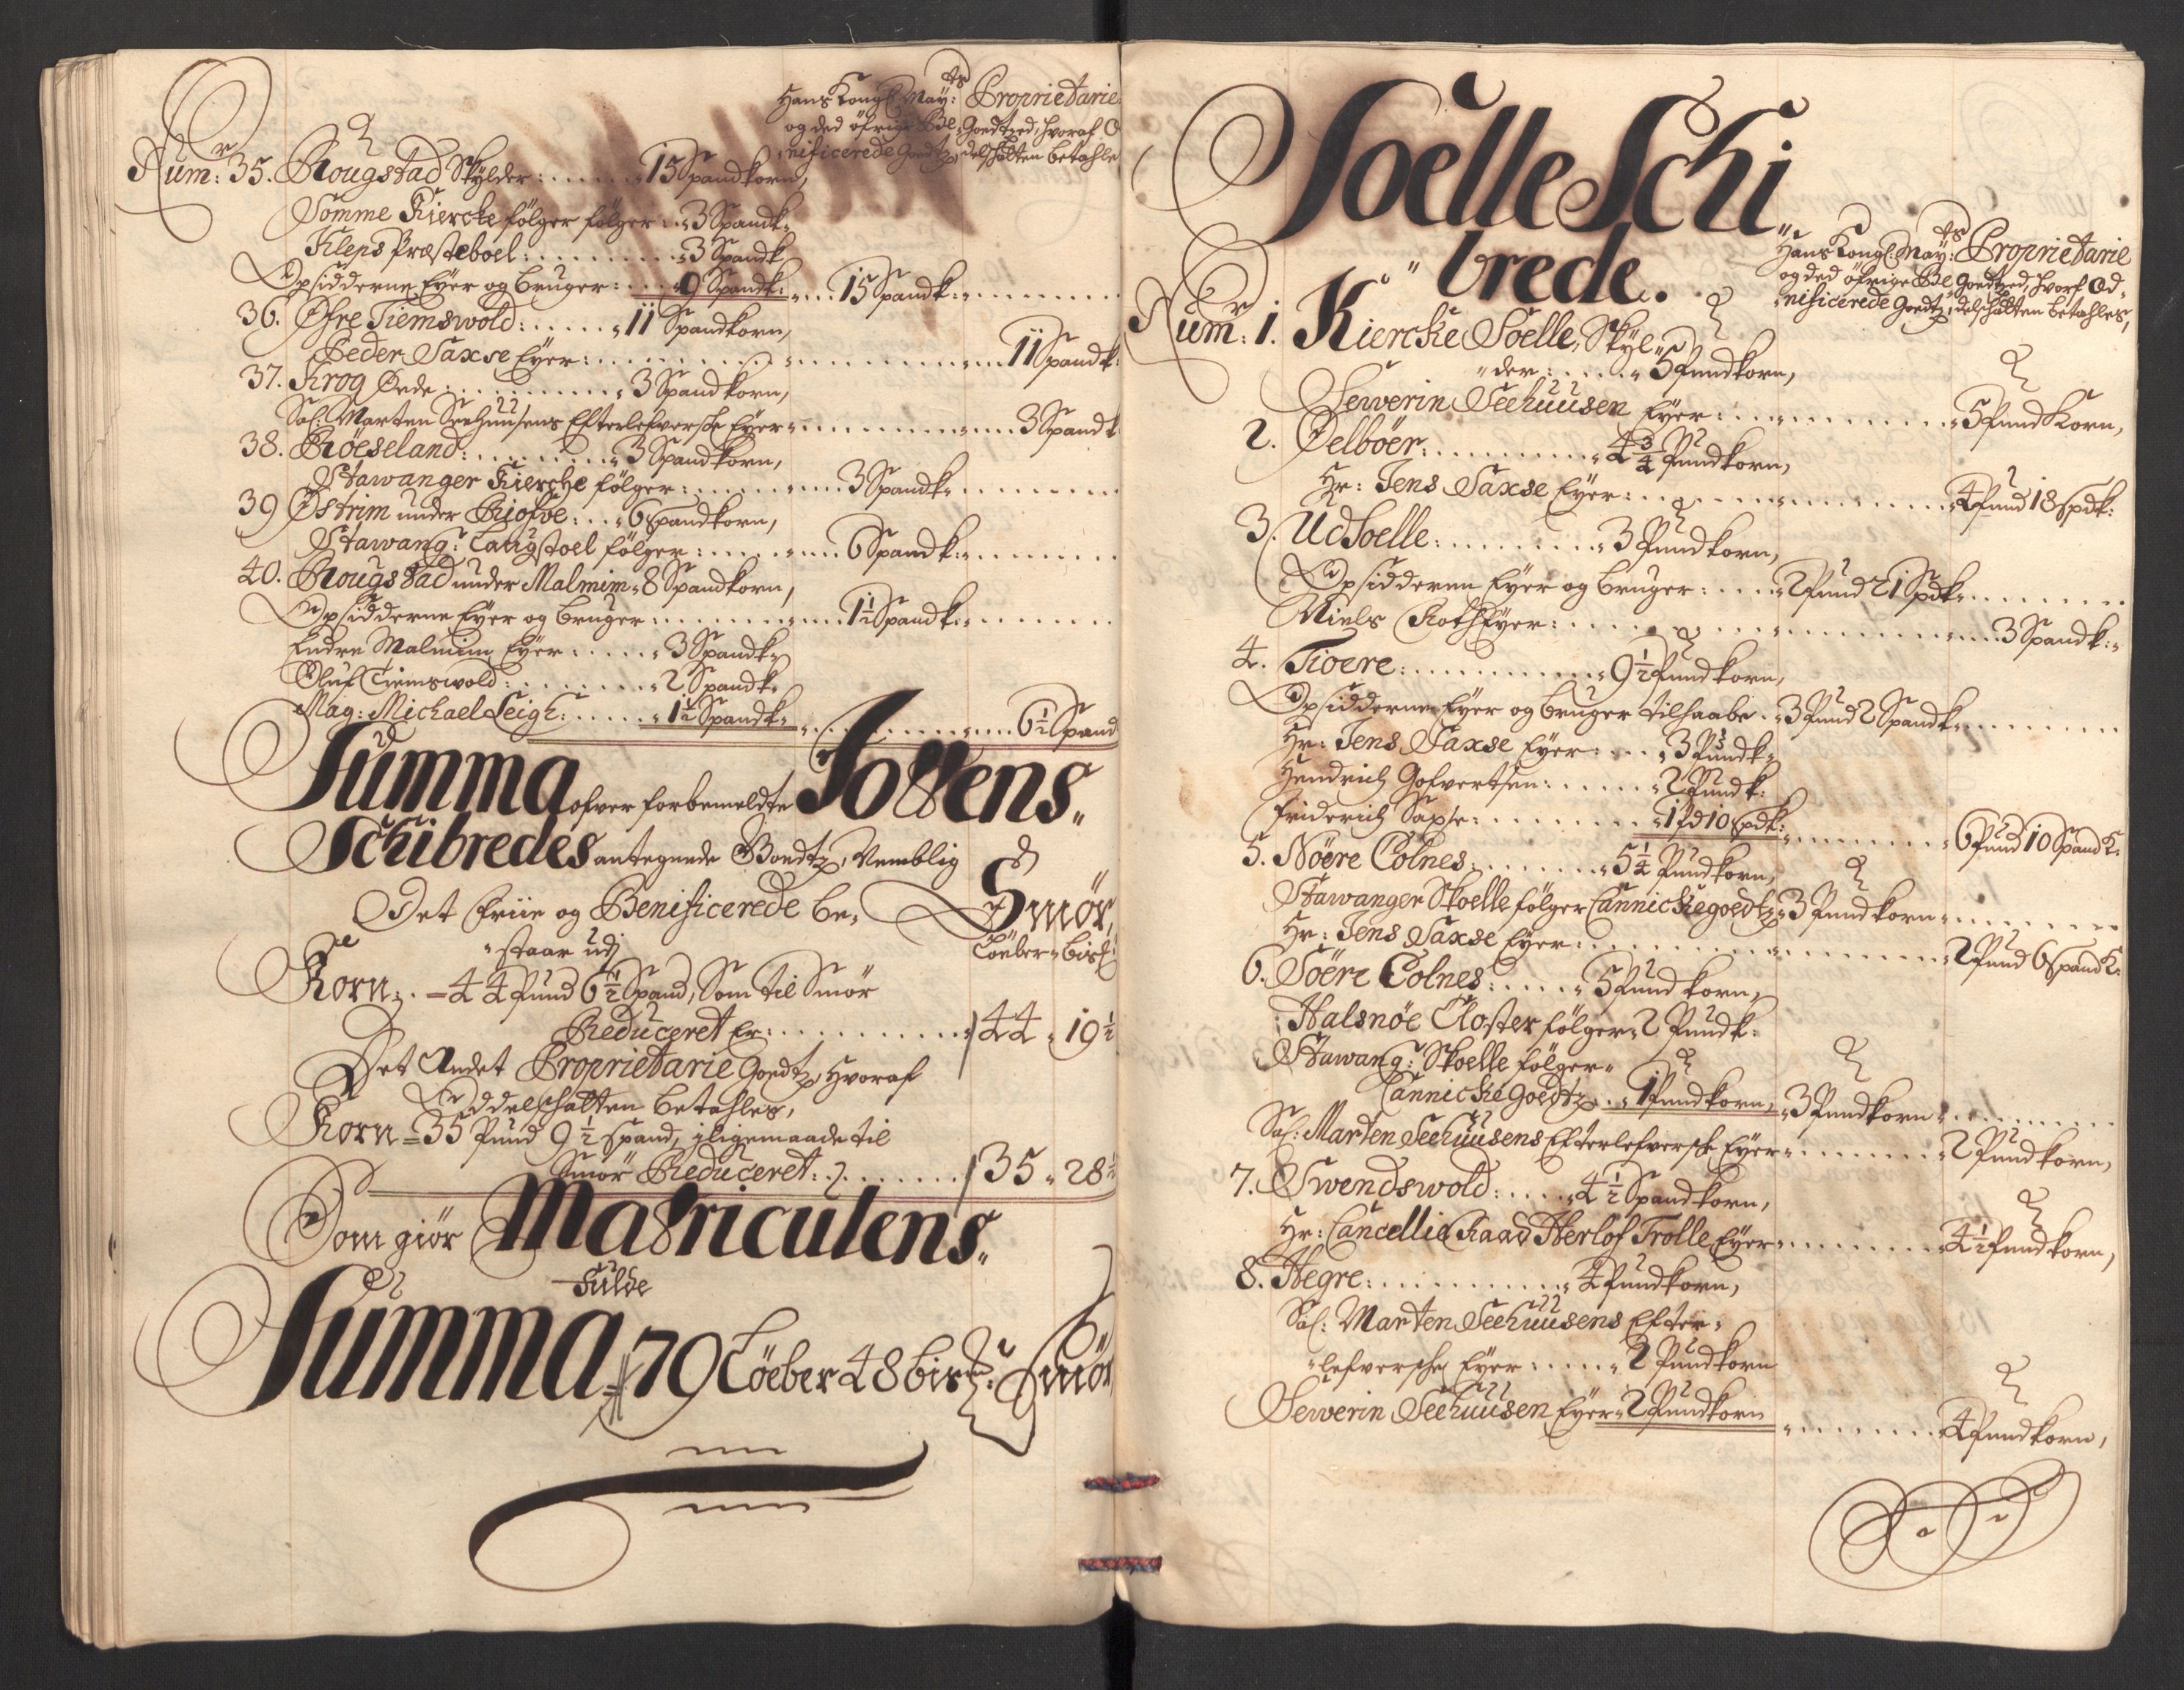 Hans Kongl: May:ts Proprietarie
og ded öfrige Be„ Goedtzed, hvoraf O
„nificerede Goedtz, delschatten betahle
Num: 35. Rougstad Skylder: ...... 15 Spandkorn,
Somme Kiercke følger følger: „ 3 Spandk„
Kleps Præsteboel: ........ „3 Spandk
Opsidderne Eyer og bruger: .... 9 Spandk: „ ... 15 Spandk: „
36. Øfre Tiemswold: ..... „ 11 Spandkorn,
Peder Saxse Eyer: ........ 11 Spandk:
37. Krog Øde: ........ „ 3 Spandkorn,
Sal: Marten Seehuusens Efterlefversche Eyer „ ...... 3 Spandk
38. Röeseland: ......... „ 3 Spandkorn,
Stawanger Kierche følger: ...... 3 Spandk„
39 Östrim under Riofve: ... „ 6 Spandkorn,
Stawang: Laugstoel følger: ...... 6 Spandk: „
40. Rougstad under Malmim „ 8 Spandkorn,
Opsidderne Eyer og bruger: ....... 1½ Spandk: „
Endre Malmim Eyer: ..... „ 3 Spandk„
Oluf Tiemswold: ....... „ 2 Spandk„
Mag: Michael Leigh: ..... „ 1½ Spandk„ ....... 6½ Spand
Summa ofver forbemeldte Jottens„
Schibredes antegnede Goedtz, Nemblig
Det friie og Benificerede be„ Smör,
„staar udj Löeber „ bisl
Korn: „ = 44 Pund 6½ Spand, Som til Smör
Reduceret er: ........ 44 „ 19½
Det Andet Proprietarie Goedtz, hvoraf
Oddelschatten betahles,
Korn = 35 Pund 9½ Spand, jligemaade til
Smör Reduceret: ...... 35 „ 28½
Som giör Matriculens„
fulde
Summa 79 Löeber 48 bis: Smör
Soelle Schi
„brede.
Hans Kongl: May:ts Proprietarie
og ded öfrige Be„ Goedtzed, hvorf Od„
„nificerede Goedtz, delschatten betahles,
Num: 1. Kiercke Soelle, Skyl„
„der: ..... „ 5 Pundkorn,
Sewerin Seehuusen Eyer: ........ „ 5 Pund Korn,
2. Oelböer: .......... „ 4¾ Pundkorn,
Hr: Jens Saxse Eyer: ........ „ 4 Pund 18 Spdk:
3. Ud Soelle: ......... „ 3 Pundkorn,
Opsidderne Eyer og bruger: .... „ 2 Pund 21 Spdk„
Niels Roth Eyer: ........ 3 Spandk: „
4. Tioere: ........... „ 9½ Pundkorn,
Opsidderne Eyer og bruger tilhaabe „ 3 Pund 2 Spandk„
Hr: Jens Saxse Eyer: .... „ 3 Pundk„
Hendrich Gofvertsen: ...... „ 2 Pundk:
Friderich Saxse: ........ „ 1 Pd 10 Spdk: „ ....... „ 6 Pund 10 Spandk:
5. Nöere Colnes: ....... „ 5¼ Pundkorn,
Stawanger Skoelle følger Cannickegoedtz „ 3 Pundkorn „
Hr: Jens Saxse Eyer: ........ „ 2 Pund 6 Spandk:
6. Söere Colnes: ..... „ 5 Pund korn,
Halsnöe Closter følger „ 2 Pundk:
Stawang: Skoelle følger „
Cannickegoedtz: .. „ 1 Pundkorn, „ 3 Pundkorn „
Sal: Marten Seehuusens Efterlefversche Eyer „ ....... „ 2 Pundkorn,
7. Swendswold: ..... „ 4½ Spandkorn,
Hr: Cancellie Raad Herlof Trolle Eyer „ ....... „ 4½ Pundkorn,
8. Hegre: .......... „ 4 Pundkorn,
Sal: Marten Seehuusens Efter„
„lefversche Eyer: ..... „ 2 Pundkorn
Sewerin Seehuusen Eyer „ 2 Pundkorn „ ....... „ 4 Pundkorn,